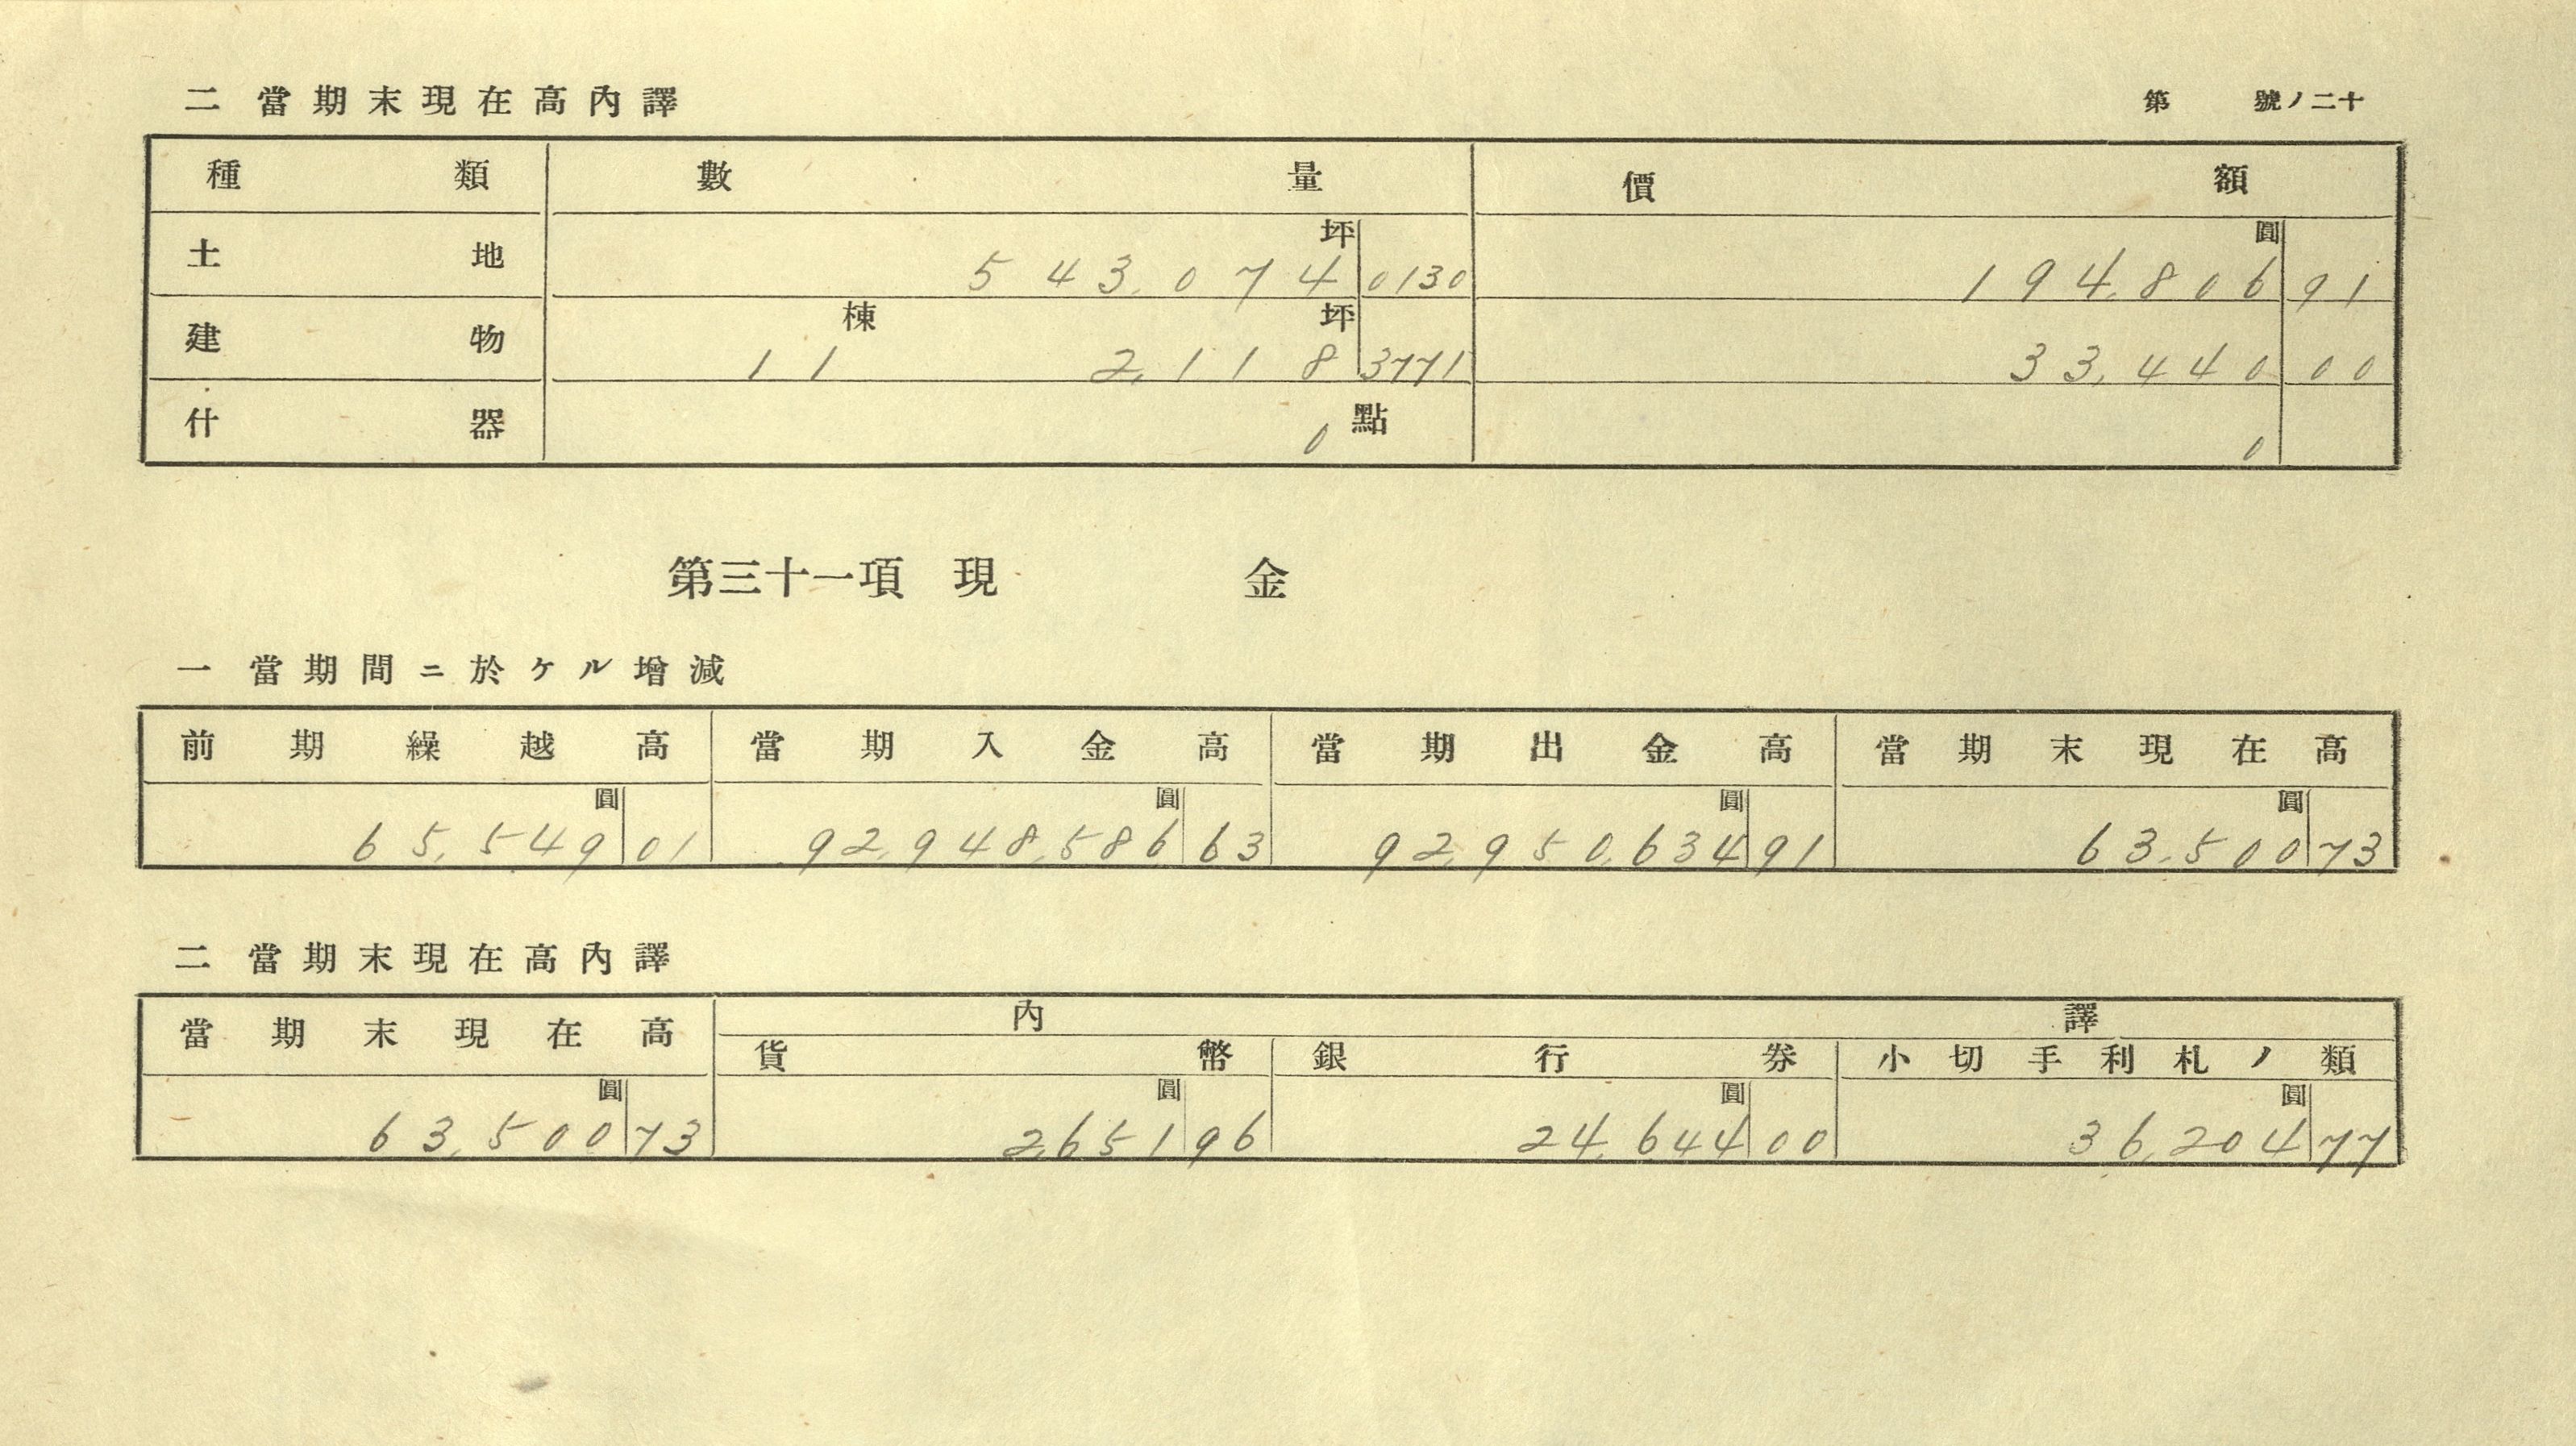 二 當期末現在高內譯 第 號ノ二十
種類 數量 價額
土地 543,074坪0130 194,806圓91
建物 11棟 2,118坪3771 33,440 00
什器 0點 0
第三十一項 現金
一 當期間ニ於ケル增減
前期繰越高 當期入金高 當期出金高 當期末現在高
65,549圓01 92,948,586圓63 92,950,634圓91 63,500圓73
二 當期末現在高內譯
當期末現在高 內譯
貨幣 銀行券 小切手利札ノ類
63,500圓73 2,651圓96 24,644圓00 36,204圓77